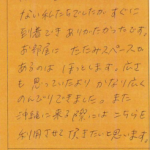 ないんだなっていたが、すぐに
到着でき ありがたかったです。
お部屋に たたみスペースが
あるのは ほっとします。広さ
も 思っていたより かなり広く
のんびりできました。また
沖縄に来る際には こちらを
利用させて頂きたいと思います。